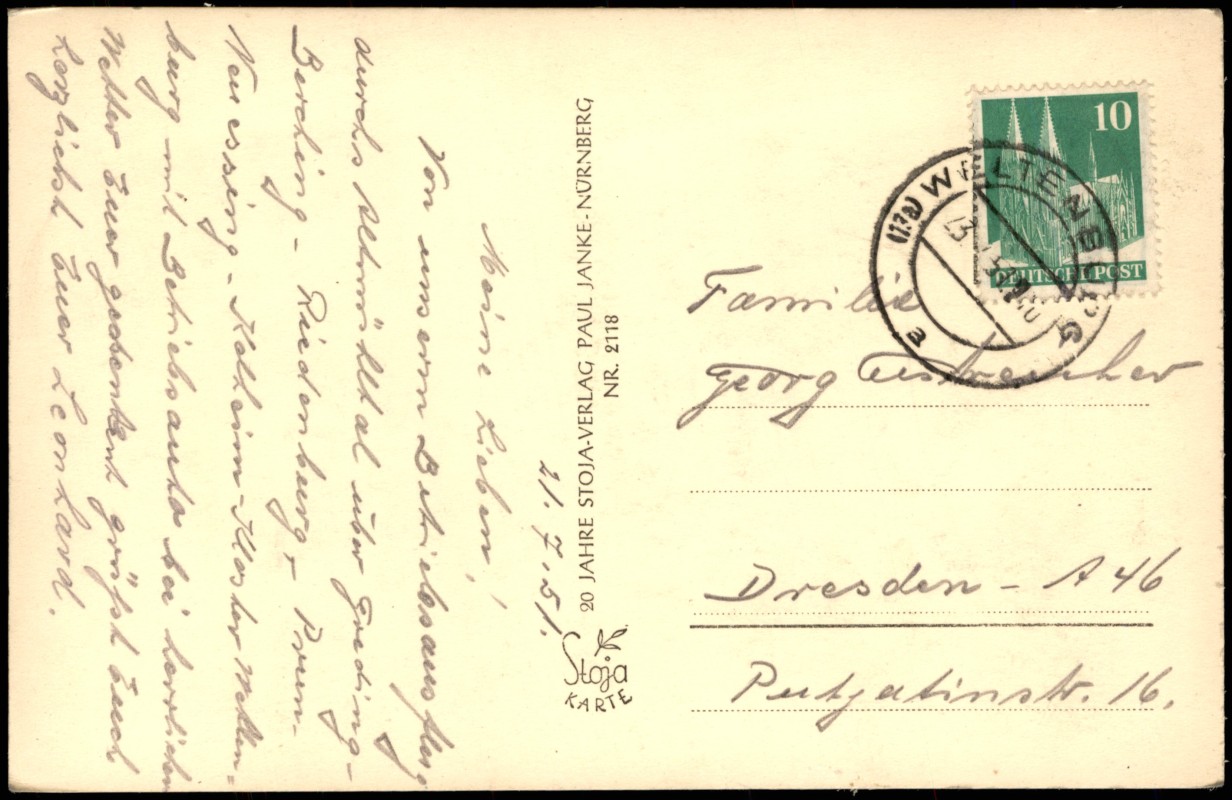 21.7.51.
Meine Lieben!
Von unserm Betriebsausflug
durchs Altmühltal über Greding-
Berching - Riedenburg - Prunn-
Neuessing - Kelheim - Kloster Welten-
burg mit Betriebsautos bei herrlichem
Wetter Euer gedenkend grüßt Euch
herzlichst Euer Leonhard.
20 JAHRE STOJA-VERLAG PAUL JANKE - NÜRNBERG
NR. 2118
Stoja
KARTE
10
DEUTSCHE POST
(13a) WELTENBURG
a
Familie
Georg
Dresden - A 46
Putjatinstr. 16.